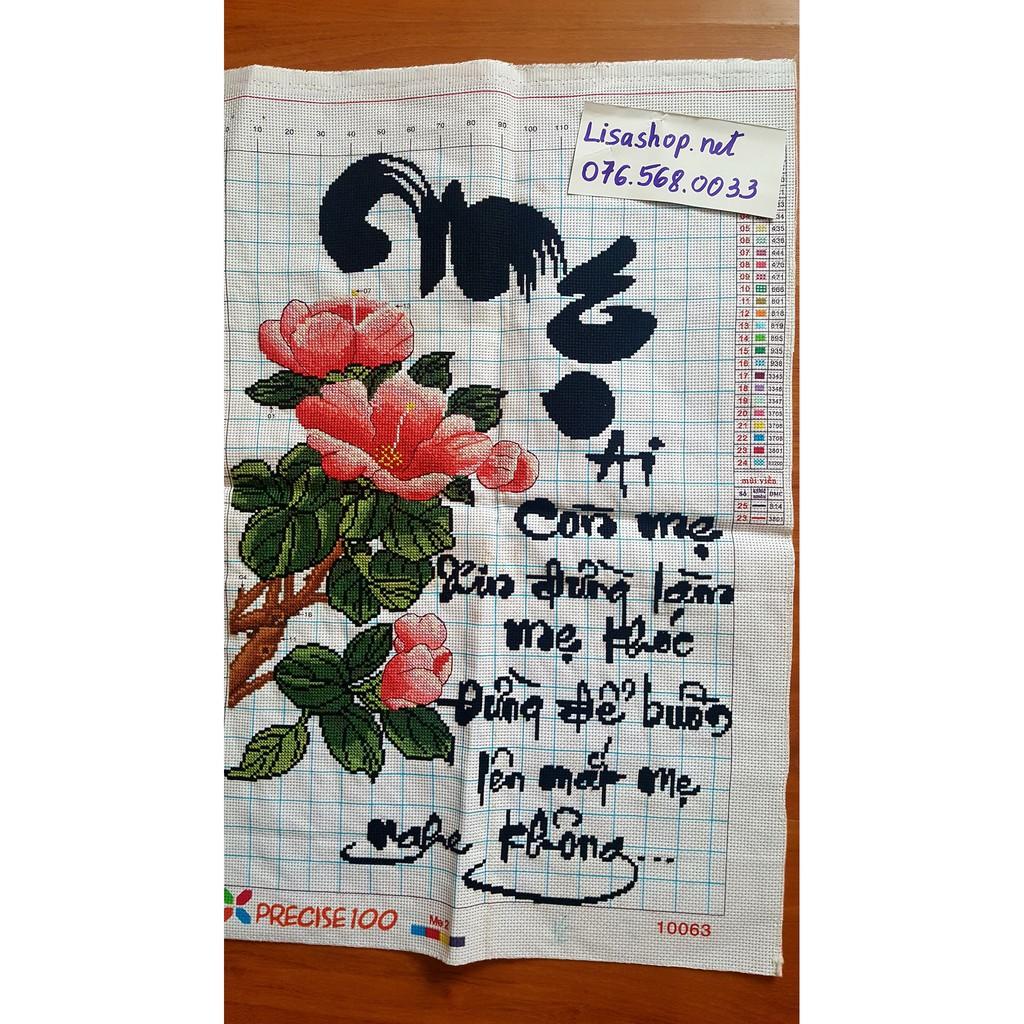 Lisashop.net
076.568.0033
10 20 30 40 50 60 70 80 90 100 110
Mẹ
Ai
Còn mẹ
Xin đừng làm
mẹ khóc
Đừng để buồn
lên mắt mẹ
nghe không...
05 435
06 436
07
08 470
09 471
10 666
11 801
12 816
13 819
14 895
15 935
16 936
17 3345
18 3346
19 3347
20 3705
21 3706
22 3708
23 3801
24
mũi viền
số DMC
25 814
23 3801
PRECISE100
10063